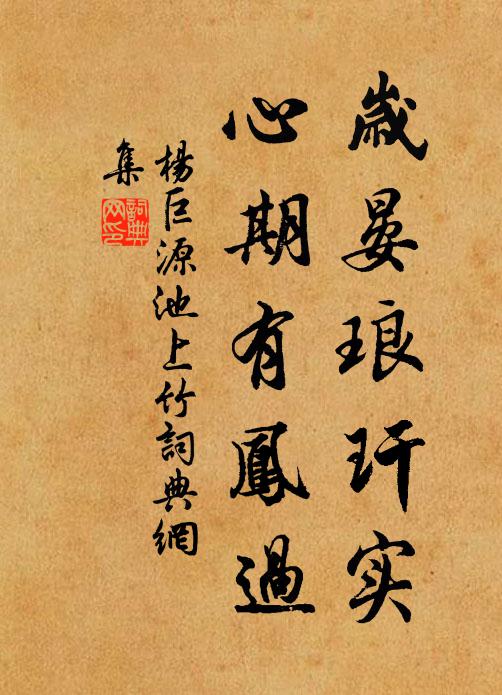 歲晏琅玕实
心期有鳳過
楊巨源池上竹詞典網
集
詞典
网印